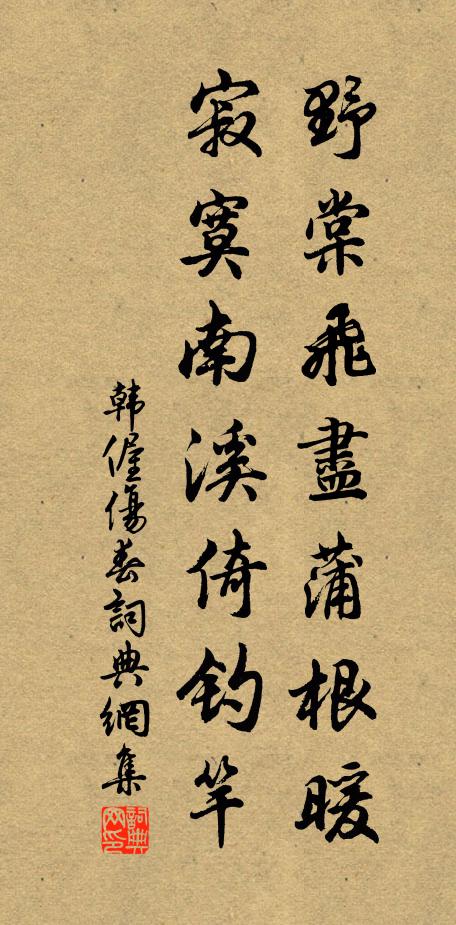 野棠飛盡蒲根暖
寂寞南溪倚釣竿
韓偓傷春詞典網集
詞典網印